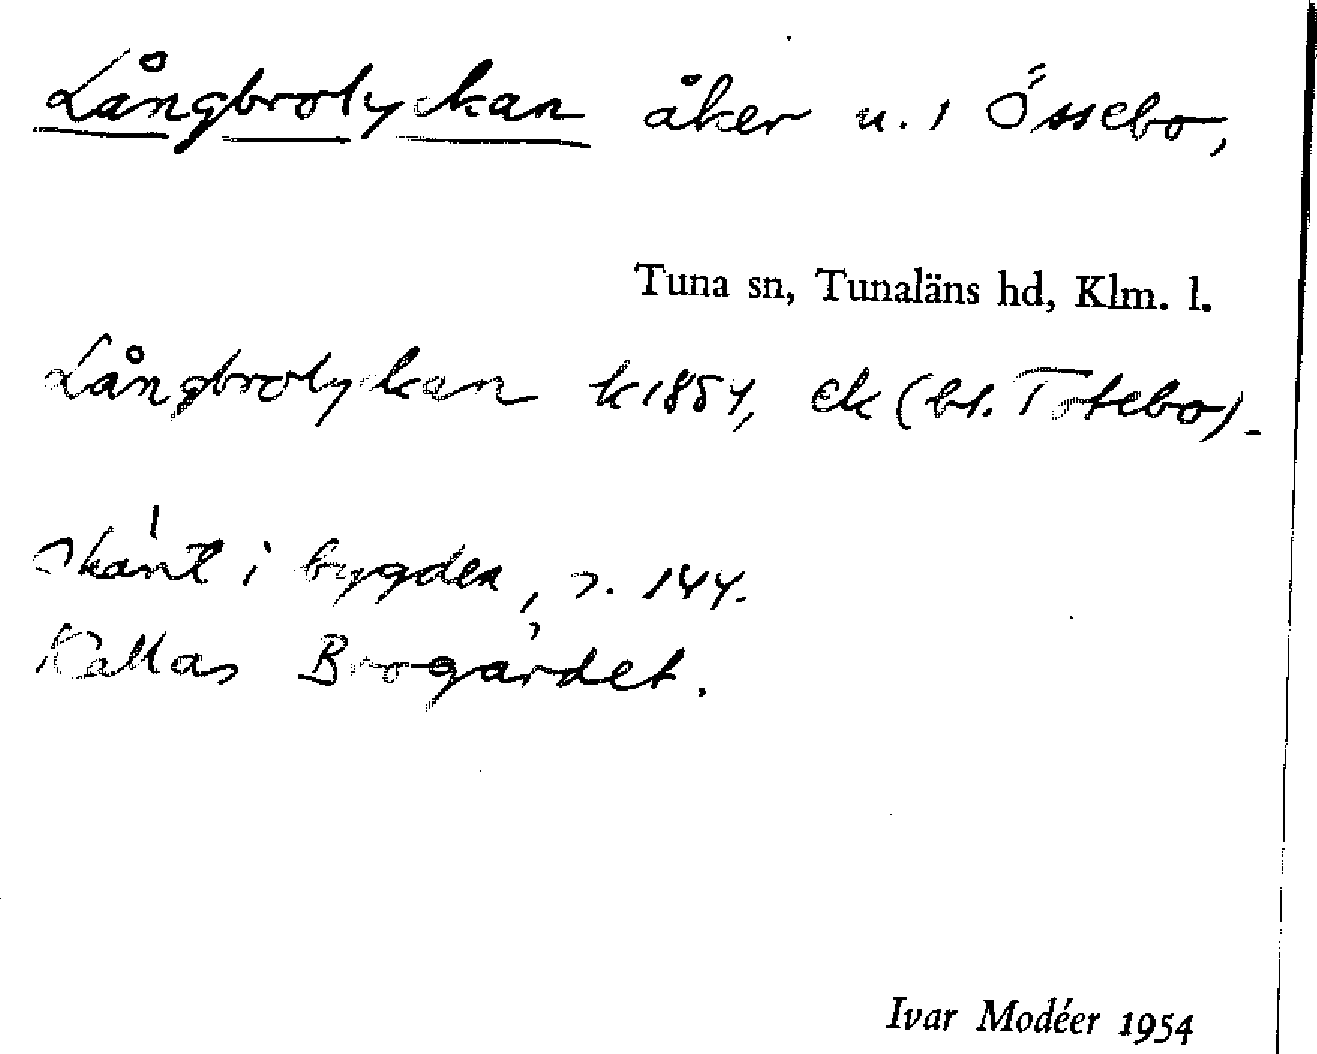 Långbrolyckan åker u. 1 Össebo,
Tuna sn, Tunaläns hd, Klm. l.
Långbrolyckan k 1854, ek (bl. Totebo).
Okänt i bygden, s. 144.
Kallas Brogärdet.
Ivar Modéer 1954